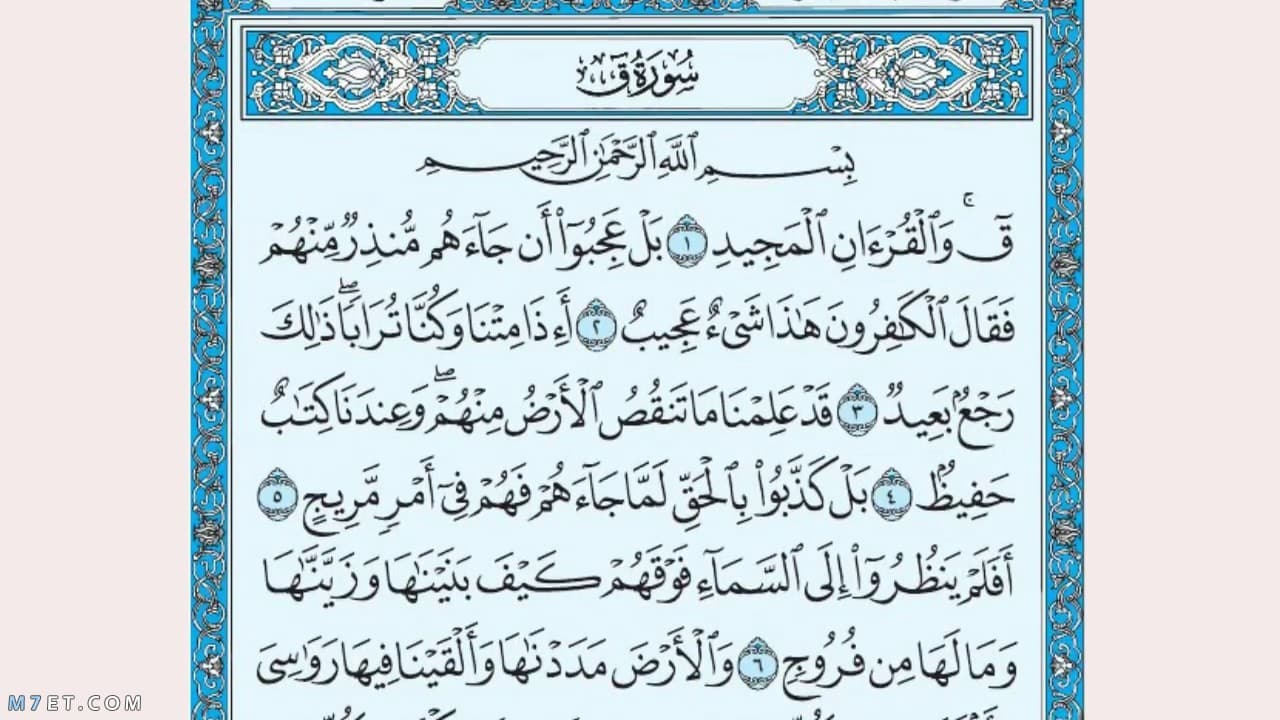 سُورَةُ قٓ
بِسْمِ ٱللَّهِ ٱلرَّحْمَٰنِ ٱلرَّحِيمِ
قٓۚ وَٱلْقُرْءَانِ ٱلْمَجِيدِ ١ بَلْ عَجِبُوٓا۟ أَن جَآءَهُم مُّنذِرٌ مِّنْهُمْ
فَقَالَ ٱلْكَٰفِرُونَ هَٰذَا شَىْءٌ عَجِيبٌ ٢ أَءِذَا مِتْنَا وَكُنَّا تُرَابًاۖ ذَٰلِكَ
رَجْعٌۢ بَعِيدٌ ٣ قَدْ عَلِمْنَا مَا تَنقُصُ ٱلْأَرْضُ مِنْهُمْۖ وَعِندَنَا كِتَٰبٌ
حَفِيظٌۢ ٤ بَلْ كَذَّبُوا۟ بِٱلْحَقِّ لَمَّا جَآءَهُمْ فَهُمْ فِىٓ أَمْرٍ مَّرِيجٍ ٥
أَفَلَمْ يَنظُرُوٓا۟ إِلَى ٱلسَّمَآءِ فَوْقَهُمْ كَيْفَ بَنَيْنَٰهَا وَزَيَّنَّٰهَا
وَمَا لَهَا مِن فُرُوجٍ ٦ وَٱلْأَرْضَ مَدَدْنَٰهَا وَأَلْقَيْنَا فِيهَا رَوَٰسِىَ
M7ET.COM